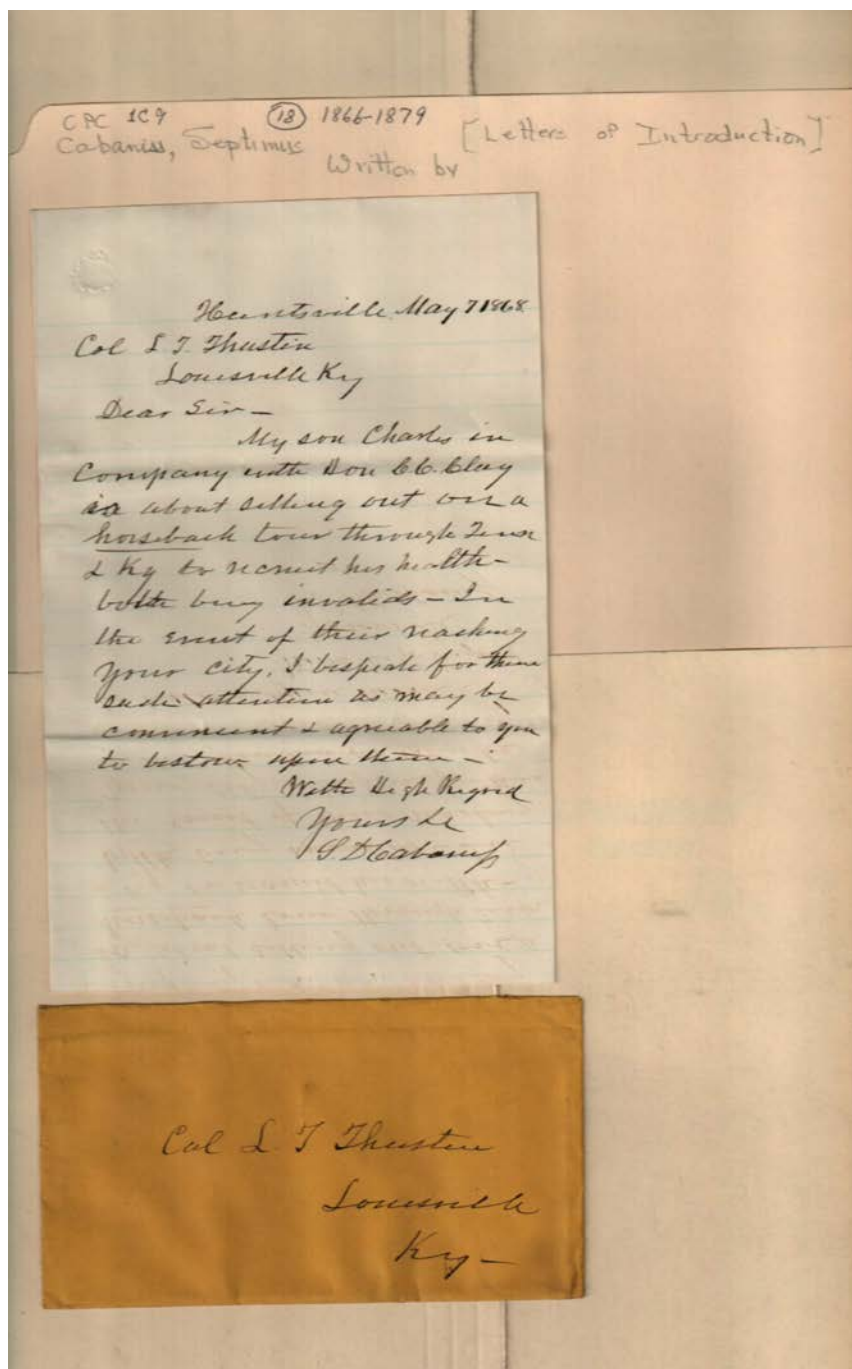 CPC 1C9 (18) 1866-1879 [Letters of Introduction]
Cabaniss, Septimus
Written by
Huntsville May 7 1868
Col L T. Thustin
Louisville Ky
Dear Sir —
My son Charles in
Company with Hon C.C. Clay
is about setting out on a
horseback tour through Tenn
& Ky to recruit his health -
both being invalids - In
the event of their reaching
your city, I bespeak for them
such attention as may be
convenient & agreeable to you
to bestow upon them -
With High Regard
Yours &c
S D Cabaniss
Col L. T Thustin
Louisville
Ky —